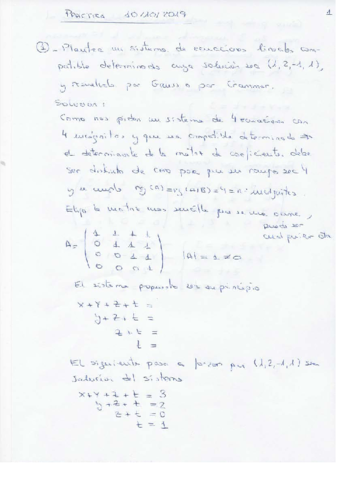 PRACTICA 10/10/2019 1
① - Plantea un sistema de ecuaciones lineales com-
patible determinado cuya solución es (1,2,-1,1),
y resuélvelo por Gauss y por Crammer.
Solución:
Como nos piden un sistema de 4 ecuaciones con
4 incógnitas y que sea compatible determinado
el determinante de la matriz de coeficientes debe
ser distinto de cero para que su rango sea 4
y se cumpla rg(A)=rg(A|B)=4=nº incógnitas.
Elijo la matriz mas sencilla que se me ocurre,
puede ser
cualquier otra
A= ( 1 1 1 1
0 1 1 1
0 0 1 1
0 0 0 1 ) |A|=1≠0
El sistema propuesto es en principio
x+y+z+t =
y+z+t =
z+t =
t =
El siguiente paso es forzar que (1,2,-1,1) sea
solución del sistema
x+y+z+t = 3
y+z+t = 2
z+t = 0
t = 1